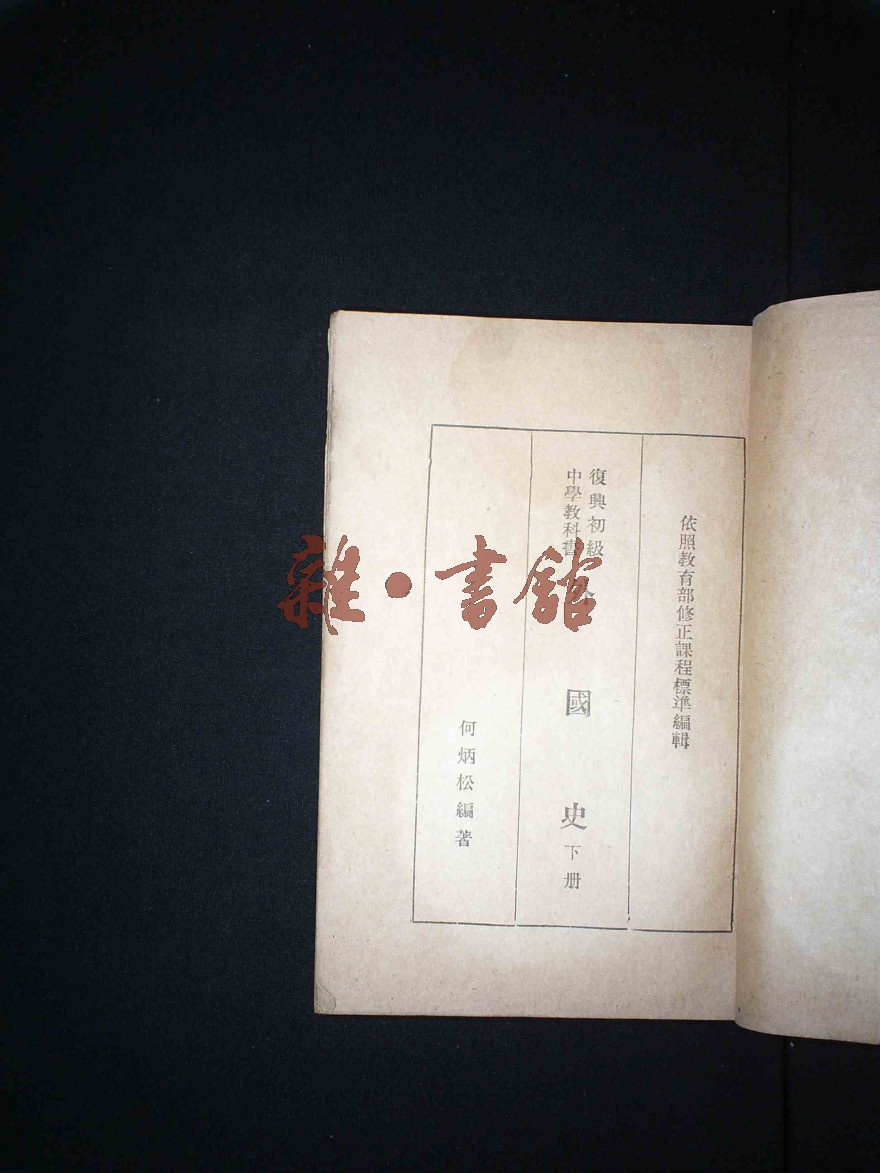 依照教育部修正課程標準編輯
復興初級
中學教科書
國史 下册
何炳松編著
雜·書館